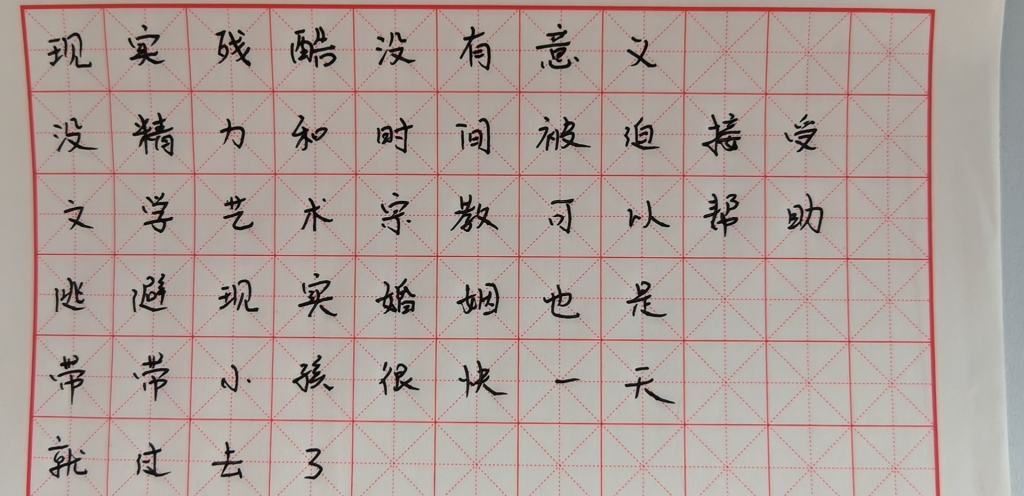 现实残酷没有意义
没精力和时间被迫接受
文学艺术宗教可以帮助
逃避现实婚姻也是
带带小孩很快一天
就过去了